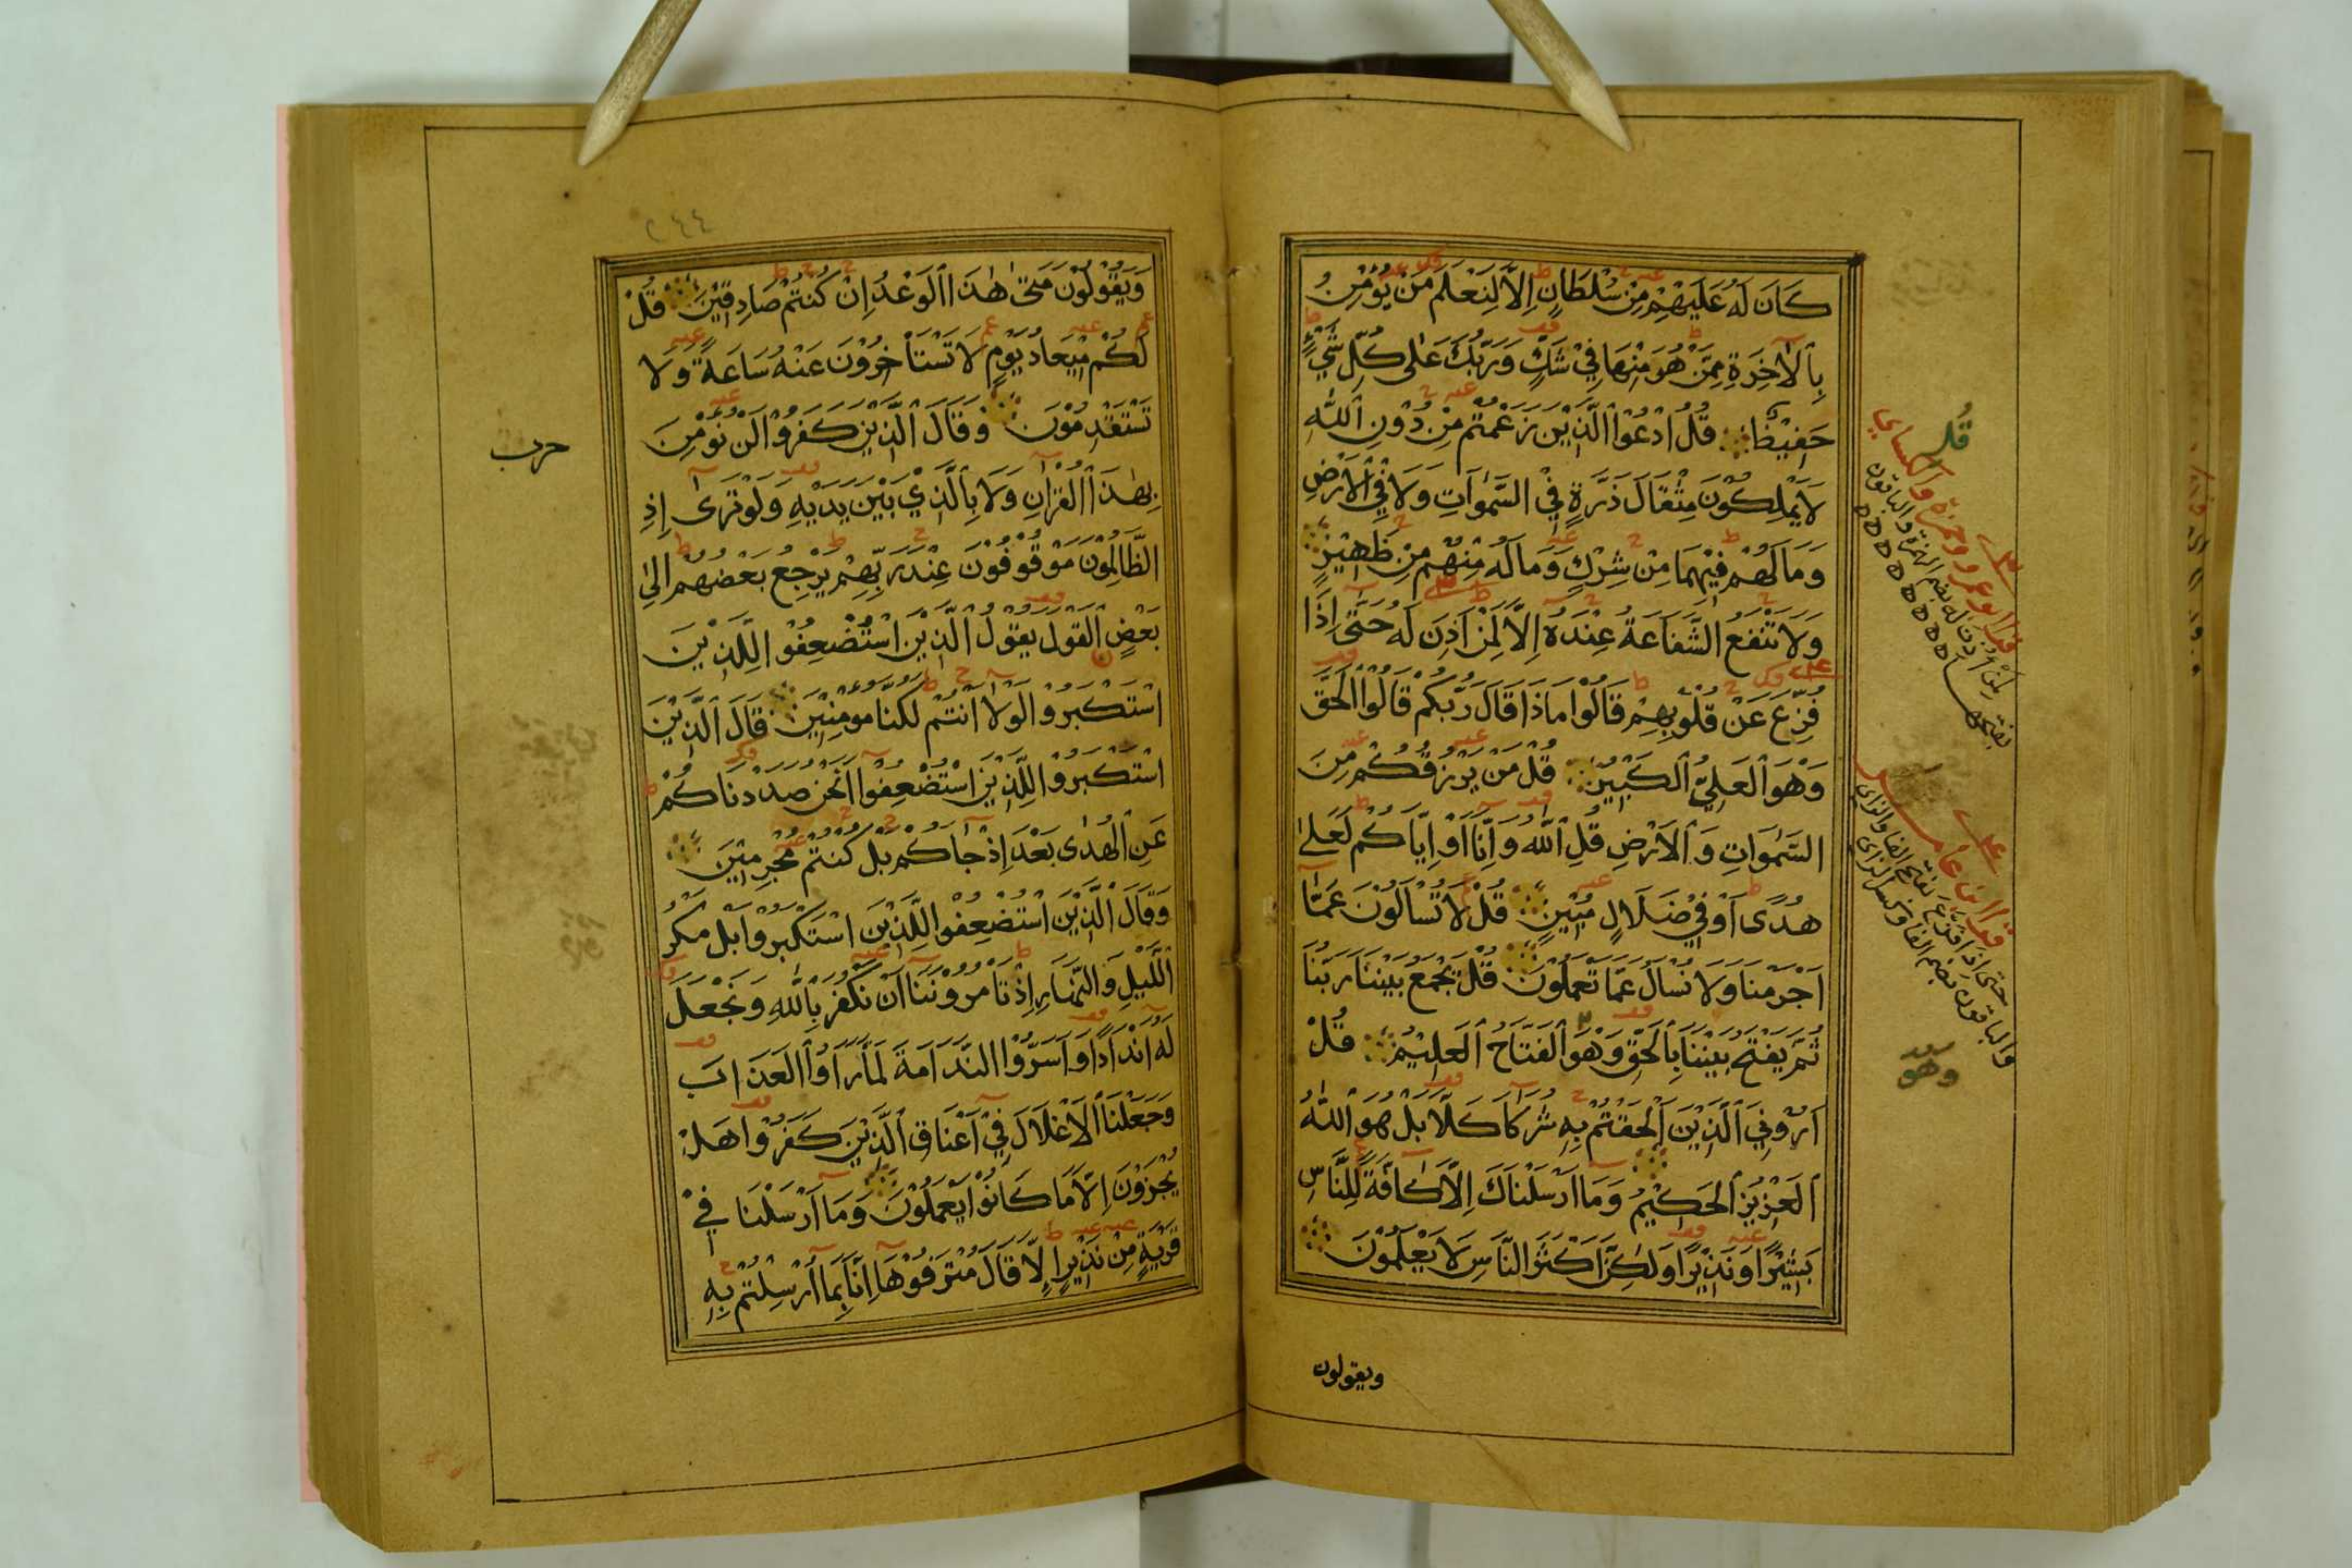 كَانَ لَهُ عَلَيْهِمْ مِنْ سُلْطَانٍ إِلَّا لِنَعْلَمَ مَنْ يُؤْمِنُ
بِالْآخِرَةِ مِمَّنْ هُوَ مِنْهَا فِيْ شَكٍّ وَرَبُّكَ عَلٰى كُلِّ شَيْءٍ
حَفِيْظٌ قُلِ ادْعُوْا الَّذِيْنَ زَعَمْتُمْ مِنْ دُوْنِ اللّٰهِ
لَا يَمْلِكُوْنَ مِثْقَالَ ذَرَّةٍ فِيْ السَّمٰوَاتِ وَلَا فِيْ الْاَرْضِ
وَمَا لَهُمْ فِيْهِمَا مِنْ شِرْكٍ وَمَا لَهُ مِنْهُمْ مِنْ ظَهِيْرٍ
وَلَا تَنْفَعُ الشَّفَاعَةُ عِنْدَهُ اِلَّا لِمَنْ اَذِنَ لَهُ حَتّٰى اِذَا
فُزِّعَ عَنْ قُلُوْبِهِمْ قَالُوْا مَاذَا قَالَ رَبُّكُمْ قَالُوْا الْحَقَّ
وَهْوَ الْعَلِيُّ الْكَبِيْرُ قُلْ مَنْ يَرْزُقُكُمْ مِنَ
السَّمٰوَاتِ وَالْاَرْضِ قُلِ اللّٰهُ وَاِنَّا اَوْ اِيَّاكُمْ لَعَلٰى
هُدًى اَوْ فِيْ ضَلَالٍ مُبِيْنٍ قُلْ لَا تُسْاَلُوْنَ عَمَّا
اَجْرَمْنَا وَلَا نُسْاَلُ عَمَّا تَعْمَلُوْنَ قُلْ يَجْمَعُ بَيْنَنَا رَبُّنَا
ثُمَّ يَفْتَحُ بَيْنَنَا بِالْحَقِّ وَهْوَ الْفَتَّاحُ الْعَلِيْمُ قُلْ
اَرُوْنِيَ الَّذِيْنَ اَلْحَقْتُمْ بِهِ شُرَكَا كَلَّا بَلْ هُوَ اللّٰهُ
الْعَزِيْزُ الْحَكِيْمُ وَمَا اَرْسَلْنَاكَ اِلَّا كَافَّةً لِلنَّاسِ
بَشِيْرًا وَنَذِيْرًا وَلٰكِنَّ اَكْثَرَ النَّاسِ لَا يَعْلَمُوْنَ
ويقولون
قُل
قرا ابو عمرو وحمزة والكسايي
قرا ابن عامر
حتى اذا فزع بفتح الفا والزاي
والباقون بضم الفا وكسر الزاي
وهو
٢٤٤
وَيَقُوْلُوْنَ مَتٰى هٰذَا الْوَعْدُ اِنْ كُنْتُمْ صَادِقِيْنَ قُلْ
لَكُمْ مِيْعَادُ يَوْمٍ لَا تَسْتَاْخِرُوْنَ عَنْهُ سَاعَةً وَلَا
تَسْتَقْدِمُوْنَ وَقَالَ الَّذِيْنَ كَفَرُوْا لَنْ نُؤْمِنَ
بِهٰذَا الْقُرْاٰنِ وَلَا بِالَّذِيْ بَيْنَ يَدَيْهِ وَلَوْ تَرٰى اِذِ
الظَّالِمُوْنَ مَوْقُوْفُوْنَ عِنْدَ رَبِّهِمْ يَرْجِعُ بَعْضُهُمْ اِلٰى
بَعْضٍ الْقَوْلَ يَقُوْلُ الَّذِيْنَ اسْتُضْعِفُوْا لِلَّذِيْنَ
اسْتَكْبَرُوْا لَوْلَا اَنْتُمْ لَكُنَّا مُومِنِيْنَ قَالَ الَّذِيْنَ
اسْتَكْبَرُوْا لِلَّذِيْنَ اسْتُضْعِفُوْا اَنَحْنُ صَدَدْنَاكُمْ
عَنِ الْهُدٰى بَعْدَ اِذْ جَاكُمْ بَلْ كُنْتُمْ مُجْرِمِيْنَ
وَقَالَ الَّذِيْنَ اسْتُضْعِفُوْا لِلَّذِيْنَ اسْتَكْبَرُوْا بَلْ مَكْرُ
اللَّيْلِ وَالنَّهَارِ اِذْ تَامُرُوْنَنَا اَنْ نَكْفُرَ بِاللّٰهِ وَنَجْعَلَ
لَهُ اَنْدَادًا وَاَسَرُّوْا النَّدَامَةَ لَمَّا رَاَوْا الْعَذَابَ
وَجَعَلْنَا الْاَغْلَالَ فِيْ اَعْنَاقِ الَّذِيْنَ كَفَرُوْا هَلْ
يُجْزَوْنَ اِلَّا مَا كَانُوْا يَعْمَلُوْنَ وَمَا اَرْسَلْنَا فِيْ
قَرْيَةٍ مِنْ نَذِيْرٍ اِلَّا قَالَ مُتْرَفُوْهَا اِنَّا بِمَا اُرْسِلْتُمْ بِهِ
حزب